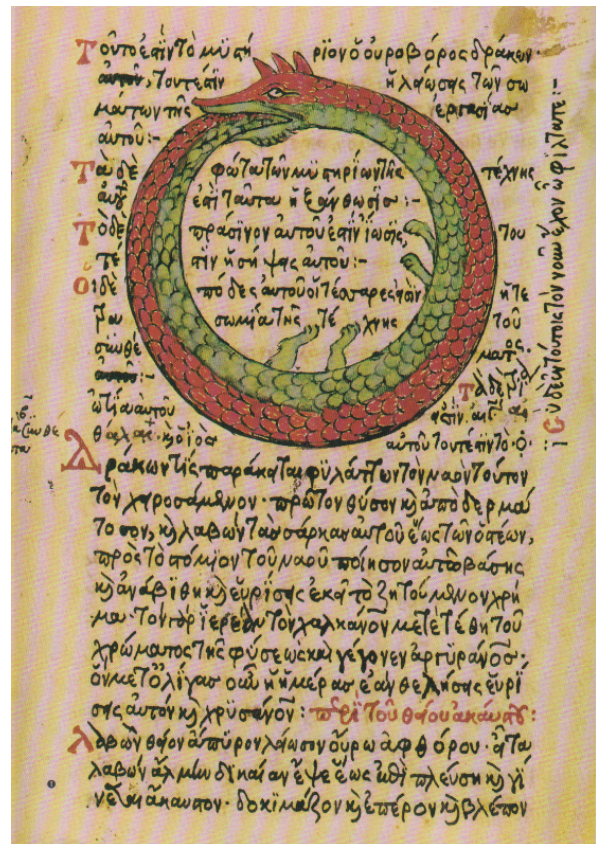 Τοῦτο ἐστὶν τὸ μυστήριον ὁ οὐροβόρος δράκων·
τουτέστιν ἡ λύωσις τῶν σω
μάτων τῆς ἐργασίασ
αὐτοῦ:-
Τὰ δὲ φῶτα τῶν μυστηρίων τῆς τέχνης
αὐτοῦ ἐστὶ ταῦτα ἡ ξάνθωσις:-
Τὸ δὲ πράσινον αὐτοῦ ἐστὶν ἴωσις, του
τέστιν ἡ σῆψις αὐτοῦ:-
Οἱ δὲ πόδες αὐτοῦ οἱ τέσσαρες ἐστὶν ἡ τε
τρασωμία τῆς τέχνης τοῦ
συνθέματος·
Τὰ δὲ τρία
ὠτία αὐτοῦ
αὐτοῦ τουτέστιν τὸ
Δράκων τὶς παράκειται φυλάττων τὸν ναὸν τοῦτον
τὸν χειροσάμενον· πρῶτον θύσον κὶ ἀπόδερμά
τοσον, κὶ λαβὼν τὰς σάρκας αὐτοῦ ἕως τῶν ὀστέων,
πρὸς τὸ στόμιον τοῦ ναοῦ ποίησον αὐτῶ βάσης
κὶ ἀνάβιθη κὶ εὑρίσης ἐκεῖ τὸ ζητούμενον χρῆ
μα· τὸν γὰρ ἱερέαν τὸν χαλκάνον μετετέθη τοῦ
χρώματος τῆς φύσεως καὶ γέγονεν ἀργυράνος·
ὃν μετ' ὀλίγας οὖν ἡμέρας ἐὰν θελήσης εὑρί
σης αὐτὸν κὶ χρυσάνον: περὶ τοῦ θείου ἀκαύστου:
Λαβὼν θεῖον ἄπυρον λείωσον οὔρω ἀφθόρου· εἶτα
λαβὼν ἅλμην δικαίαν ἕψε ἕως ἐπιπλεύση κὶ γί
νεται ἄκαυστον· δοκίμαζον κὶ ἐπέρον κὶ βλέπον